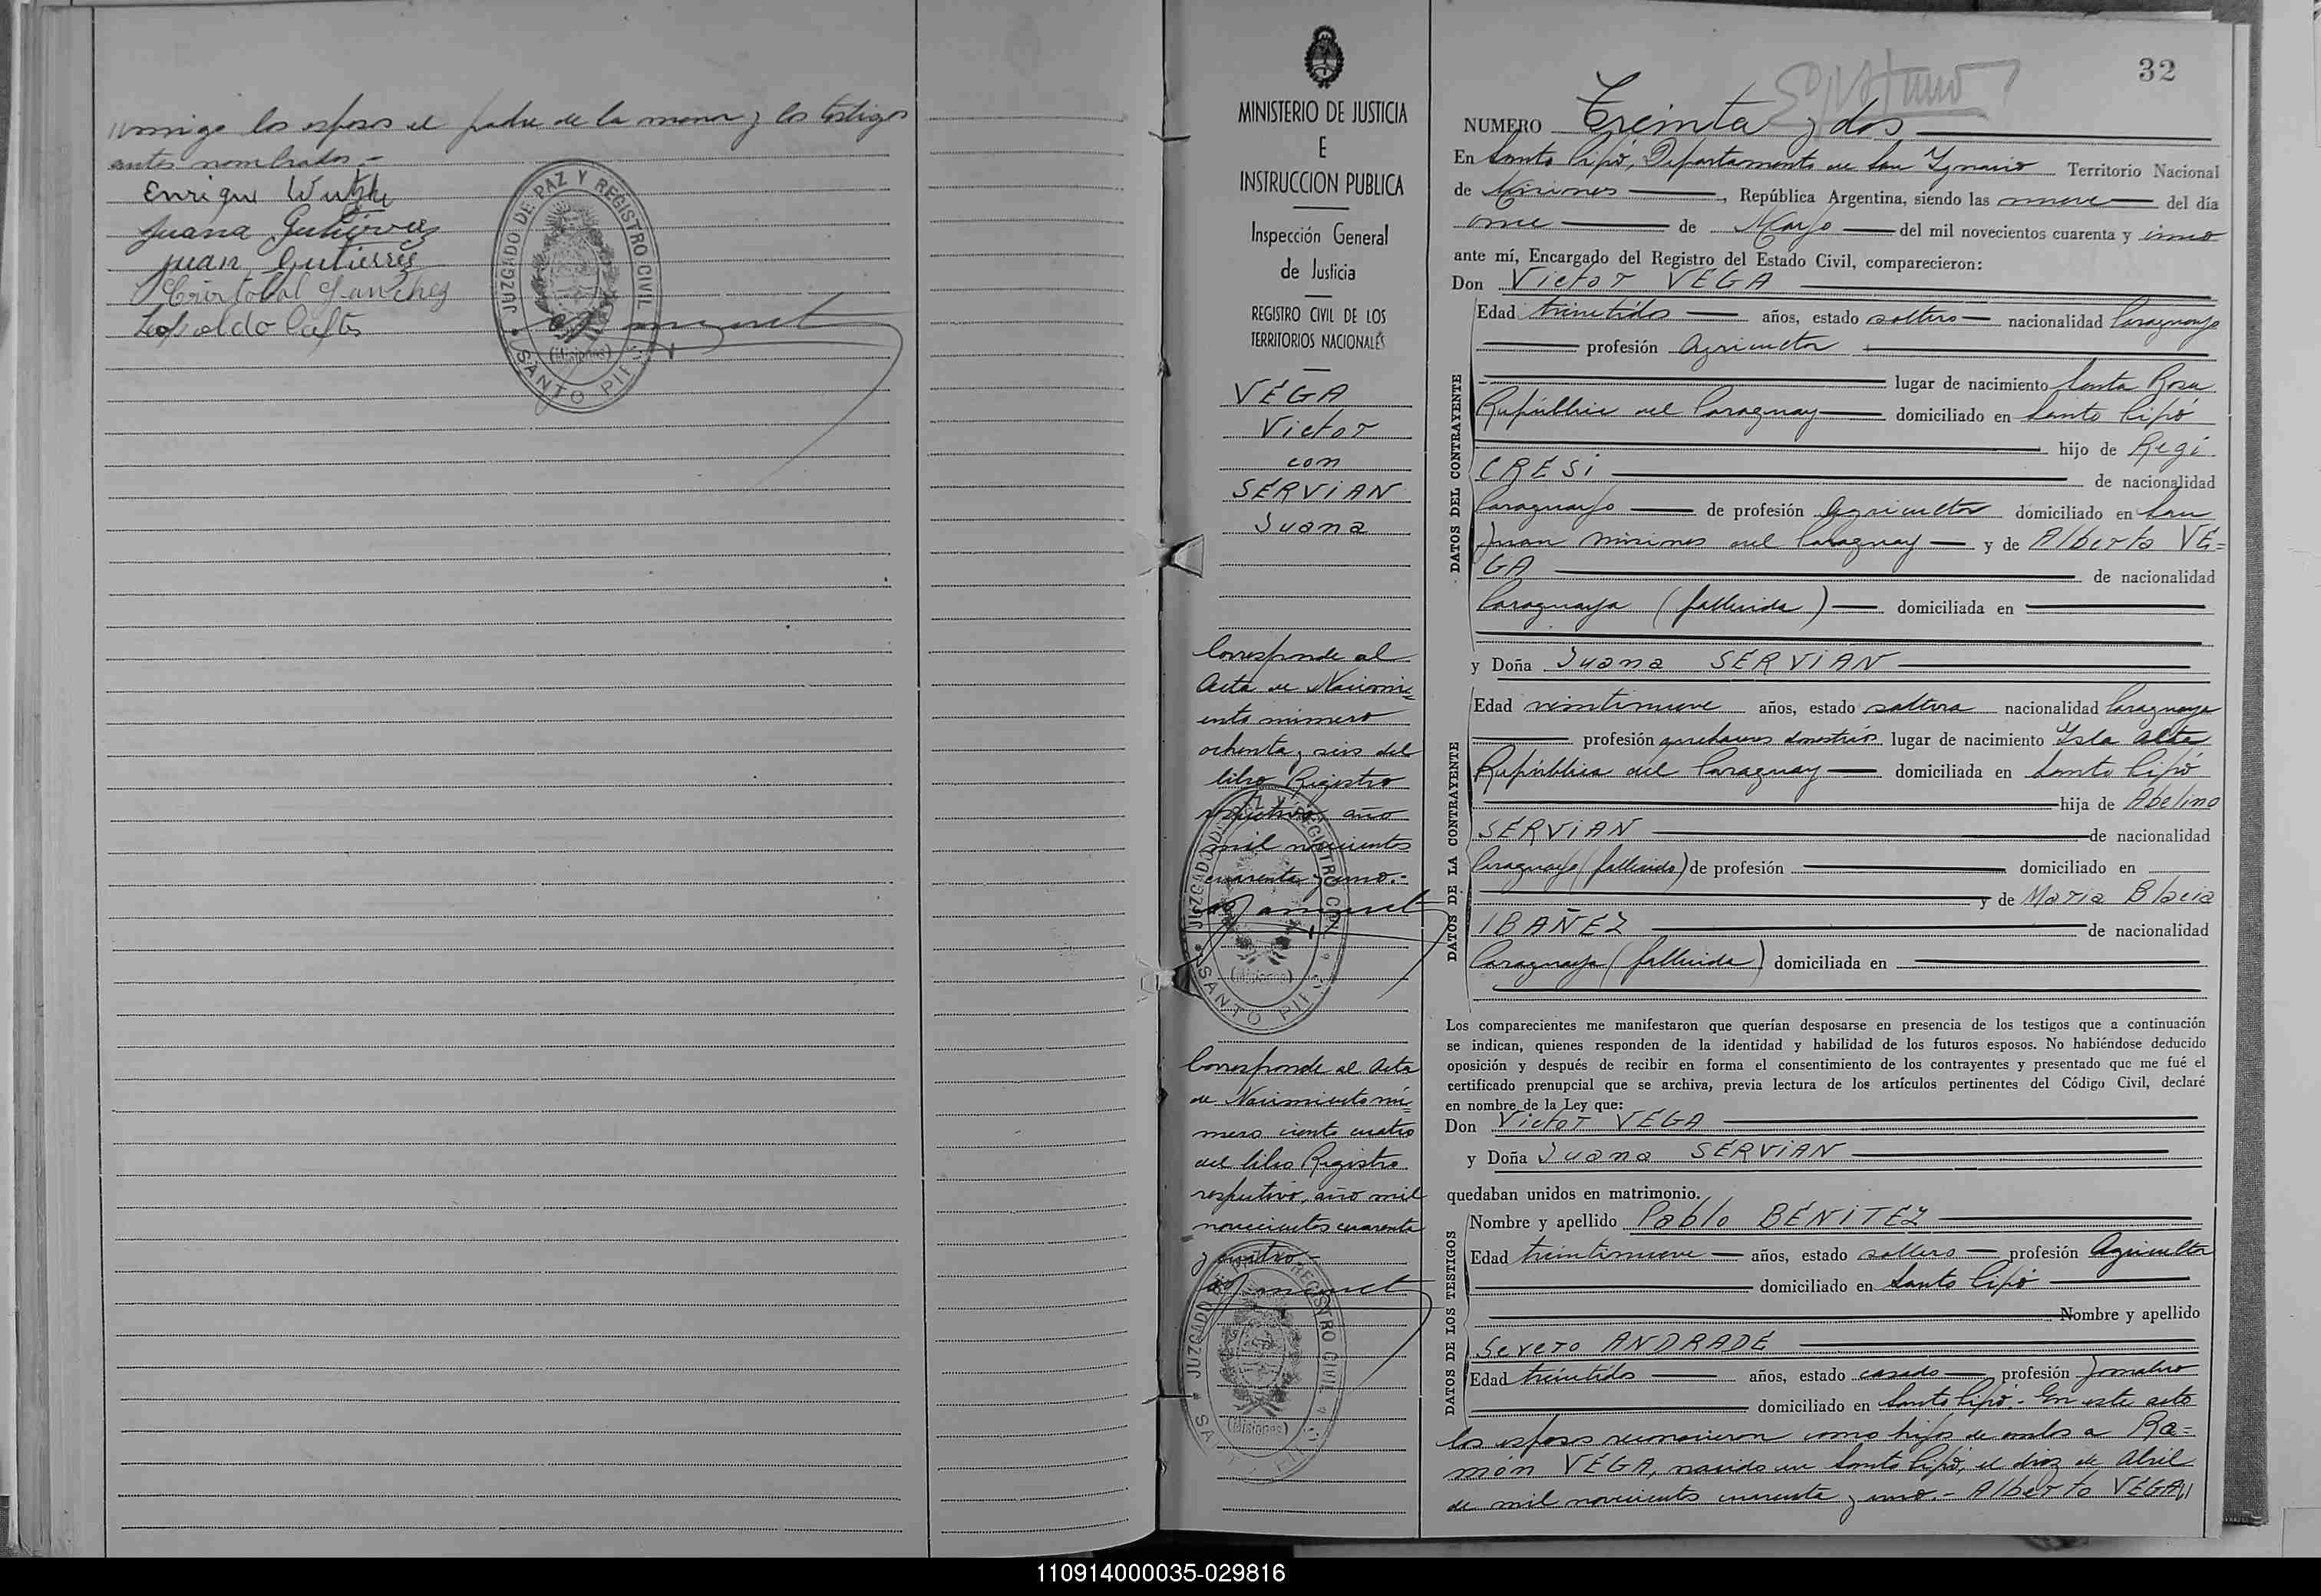 conmigo los esposos el padre de la menor y los testigos
antes nombrados.-
Enrique
Juana Gutierrez
Juan Gutierres
Cristobal Sanchez
Leopoldo
JUZGADO DE PAZ Y REGISTRO CIVIL
(Misiones)
SANTO PIPÓ
MINISTERIO DE JUSTICIA
E
INSTRUCCION PUBLICA
Inspección General
de Justicia
REGISTRO CIVIL DE LOS
TERRITORIOS NACIONALES
VEGA
Victor
con
SERVIAN
Juana
Corresponde al
Acta de Nacimi=
ento número
ochenta y seis del
libro Registro
respectivo, año
mil novecientos
cuarenta y uno.-
JUZGADO DE PAZ Y REGISTRO CIVIL
(Misiones)
SANTO PIPÓ
Corresponde al Acta
de Nacimiento nú=
mero ciento cuatro
del libro Registro
respectivo, año mil
novecientos cuarenta
y cuatro
JUZGADO DE PAZ Y REGISTRO CIVIL
(Misiones)
32
NUMERO Treinta y dos
En Santo Pipó, Departamento de San Ygnacio Territorio Nacional
de Misiones, República Argentina, siendo las nueve del día
once de Mayo del mil novecientos cuarenta y cinco
ante mí, Encargado del Registro del Estado Civil, comparecieron:
Don Victor VEGA
DATOS DEL CONTRAYENTE
Edad treintidós años, estado soltero nacionalidad Paraguayo
profesión Agricultor
lugar de nacimiento Santa Rosa
República del Paraguay domiciliado en Santo Pipó
hijo de Regi
CRESI
de nacionalidad
Paraguayo de profesión Agricultor domiciliado en San
Juan Misiones del Paraguay y de Alberta VE=
GA
de nacionalidad
Paraguaya (fallecida) domiciliada en
y Doña Juana SERVIAN
DATOS DE LA CONTRAYENTE
Edad veintinueve años, estado soltera nacionalidad Paraguaya
profesión quehaceres domésticos lugar de nacimiento Ysla Alta
República del Paraguay domiciliada en Santo Pipó
hija de Abelino
SERVIAN de nacionalidad
Paraguayo (fallecido) de profesión domiciliado en
y de Maria Blacia
IBAÑEZ de nacionalidad
Paraguaya (fallecida) domiciliada en
Los comparecientes me manifestaron que querían desposarse en presencia de los testigos que a continuación
se indican, quienes responden de la identidad y habilidad de los futuros esposos. No habiéndose deducido
oposición y después de recibir en forma el consentimiento de los contrayentes y presentado que me fué el
certificado prenupcial que se archiva, previa lectura de los artículos pertinentes del Código Civil, declaré
en nombre de la Ley que:
Don Victor VEGA
y Doña Juana SERVIAN
quedaban unidos en matrimonio.
DATOS DE LOS TESTIGOS
Nombre y apellido Pablo BENITEZ
Edad treintinueve años, estado soltero profesión Agricultor
domiciliado en Santo Pipó
Nombre y apellido
Severo ANDRADE
Edad treintidós años, estado casado profesión Jornalero
domiciliado en Santo Pipó.- En este acto
los esposos reconocieron como hijos de ambos a Ra=
món VEGA, nacido en Santo Pipó, el diez de Abril
de mil novecientos cuarenta y uno.- Alberto VEGA,//
110914000035-029816